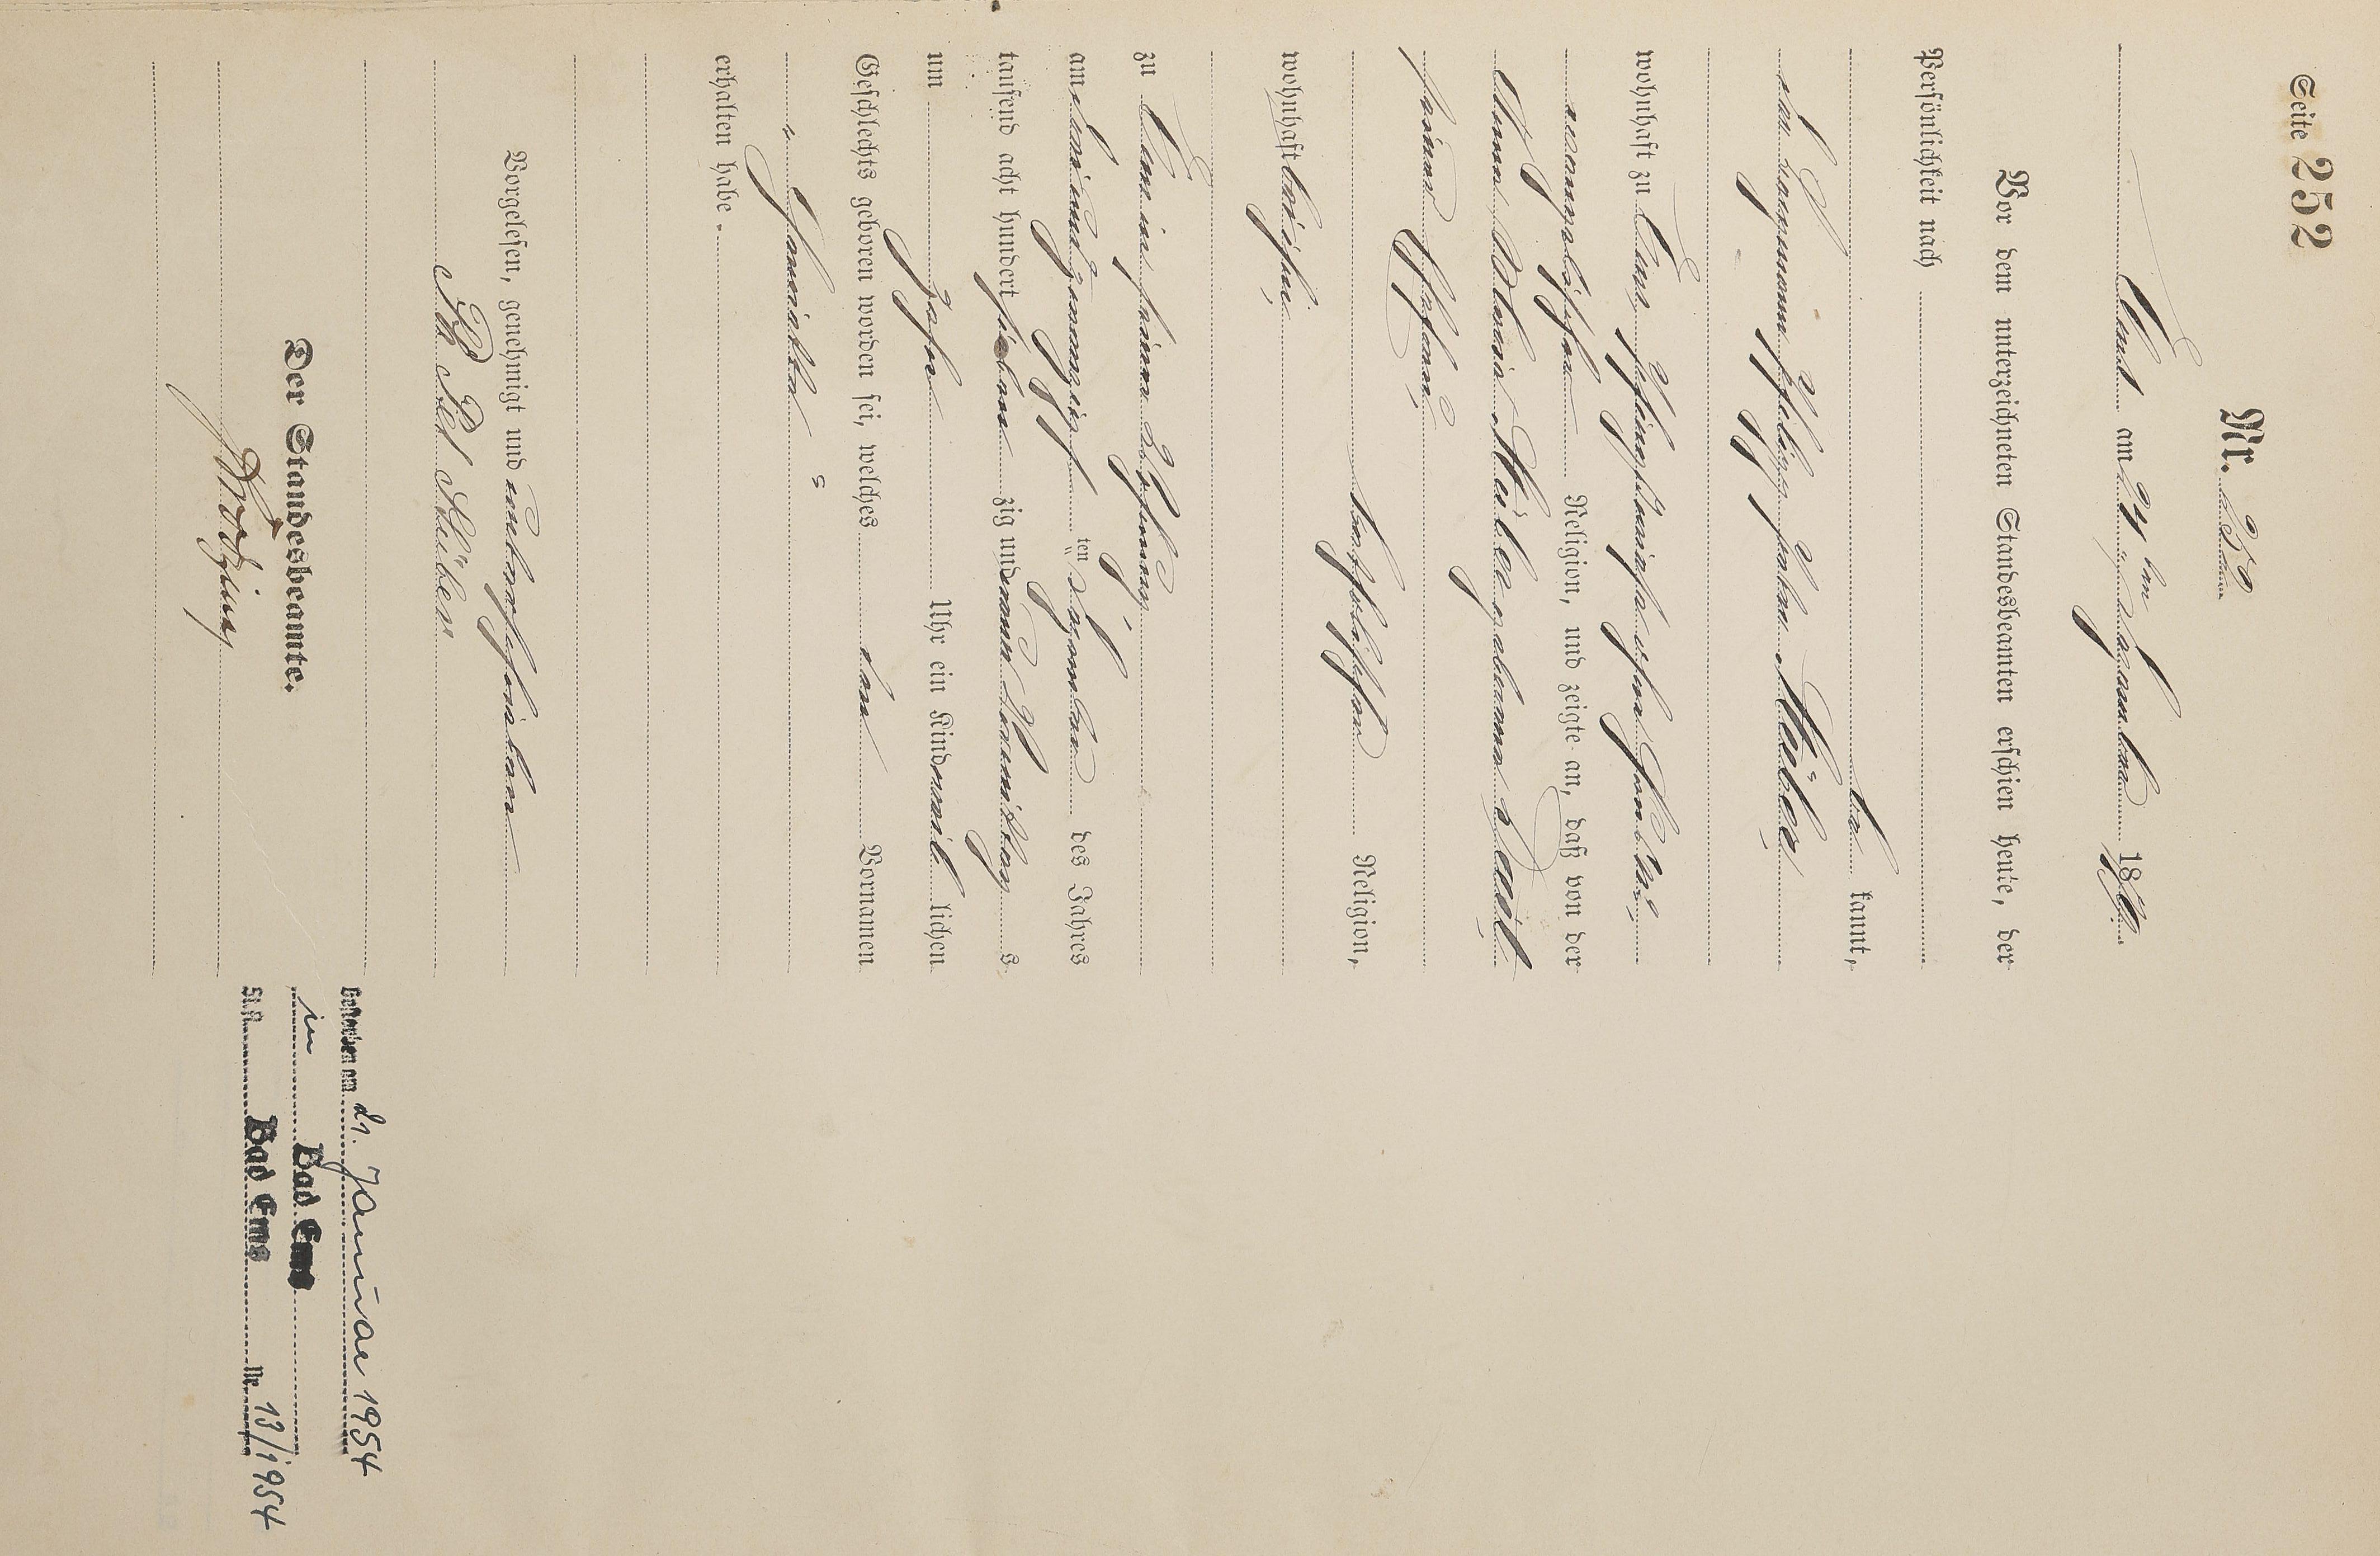 Seite 252
Nr. 252
Ems am 24ten Dezember 1879.
Vor dem unterzeichneten Standesbeamten erschien heute, der
Persönlichkeit nach
be kannt,
der Philipp Stüber
wohnhaft zu Ems,
evangelischer Religion, und zeigte an, daß von der
Anna Maria Stüber geborene
seiner Ehefrau,
katholischer Religion,
wohnhaft bei ihm,
zu Ems in seiner Wohnung
am drei und zwanzigsten Dezember des Jahres
tausend acht hundert sieben zig und neun Vormittags
um Uhr ein Kind weiblichen
Geschlechts geboren worden sei, welches den Vornamen
erhalten habe.
Vorgelesen, genehmigt und unterschrieben
Stüber
Der Standesbeamte.
Gestorben am 21. Januar 1954
in Bad Ems
St.A. Bad Ems Nr. 13/1954